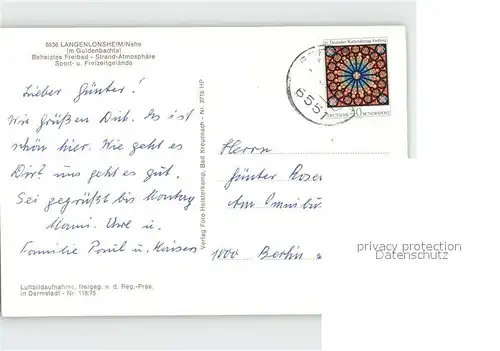 6536 LANGENLONSHEIM/Nahe
Im Guldenbachtal
Beheiztes Freibad - Strand-Atmosphäre
Sport- u. Freizeitgelände
Lieber Günter!
Wir grüßen Dich. Es ist
schön hier. Wie geht es
Dir? uns geht es gut.
Sei gegrüßt bis Montag
Mami. Uwe u.
Familie Paul u. Kaiser
Luftbildaufnahme, freigeg. v. d. Reg.-Präs.
in Darmstadt - Nr. 119/75
Verlag Foto Holsterkamp, Bad Kreuznach - Nr. 2716 HP
85. Deutscher Katholikentag Freiburg
40
DEUTSCHE BUNDESPOST
6551
Herrn
Günter Roser
Am Omnibu
1000 Berlin
privacy protection
Datenschutz